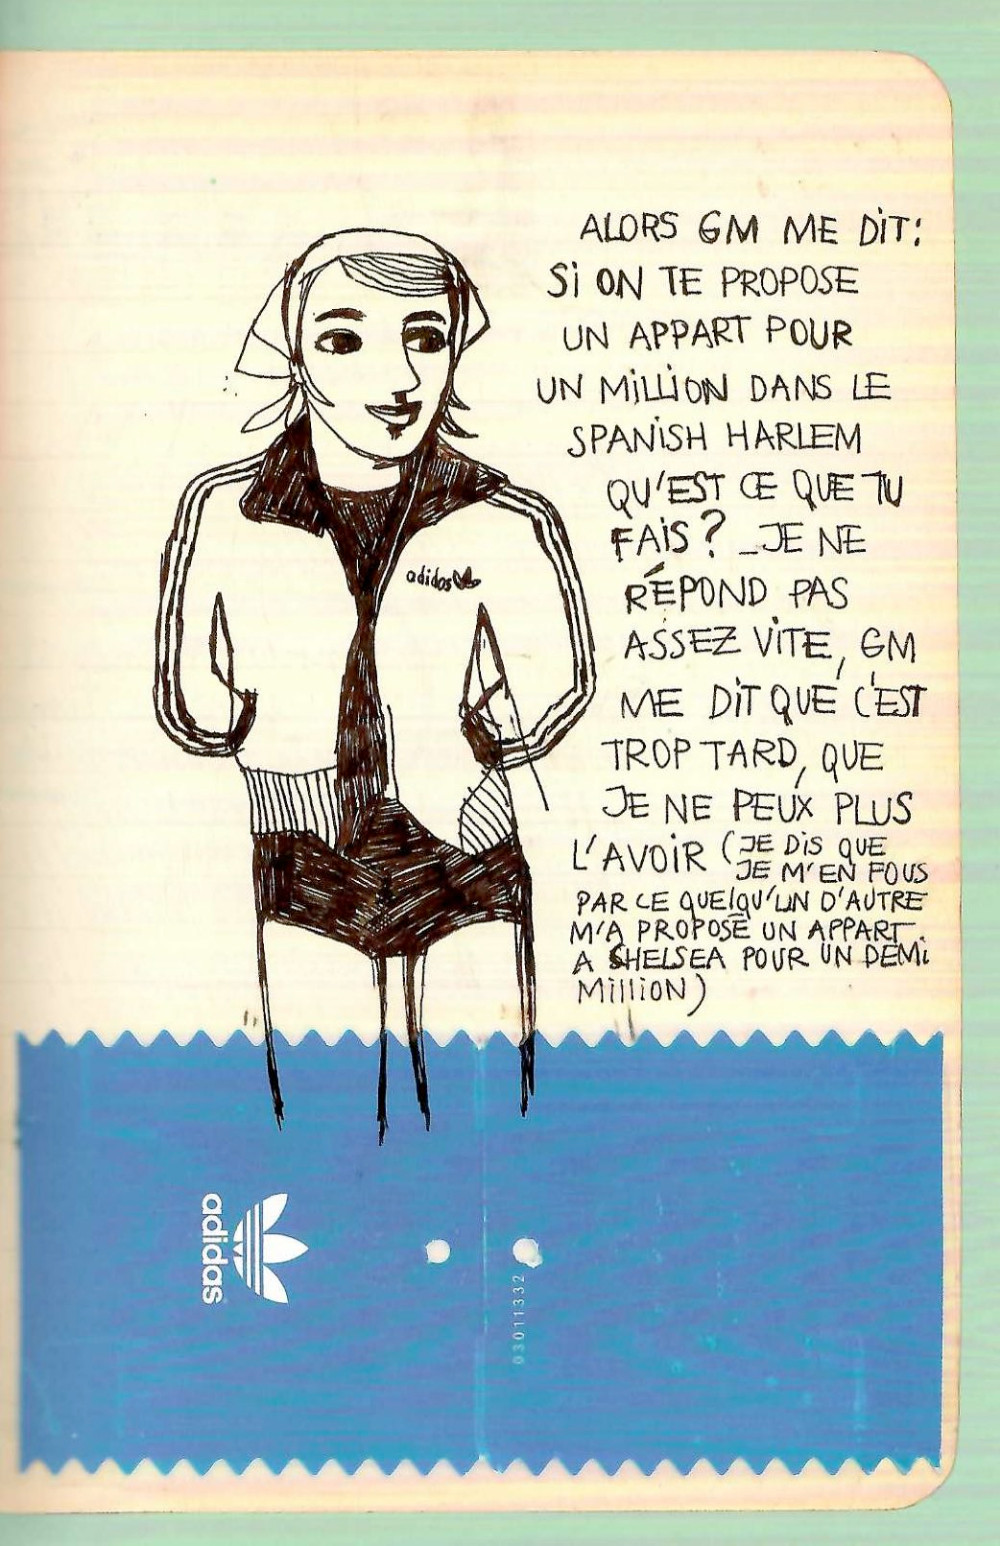 ALORS GM ME DiT:
Si ON TE PROPOSE
UN APPART POUR
UN MiLLiON DANS LE
SPANiSH HARLEM
QU'EST CE QUE TU
FAiS? _JE NE
RÉPOND PAS
ASSEZ ViTE, GM
ME DiT QUE C'EST
TROP TARD, QUE
JE NE PEUX PLUS
L'AVOiR (JE DiS QUE
JE M'EN FOUS
PARCE QUElQU'UN D'AUTRE
M'A PROPOSÉ UN APPART
A SHELSEA POUR UN DEMi
MilliON)
adidas
adidas
03011332